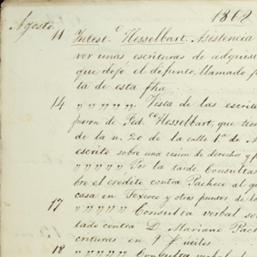 1862
Agosto.
11 Intest.º Hesselbart. Asistencia
ver unas escrituras de adquisi
que dejó el defunto, llamado p
ta de esta fha
14 " " " " " Vista de las escrit
fueron de Ped.º Hesselbart, que tien
de la n. 20 de la calle 1ª de M
escrito sobre una cesion de derecho y p
" " " " " Por la tarde Consultas
bre el credito contra Pacheco al g
casa en Texcoco y otros puntos de lo
17 " " " " " Consulta verbal so
tado contra D. Mariano Pach
crituras en 9 f. utiles.
18 " " " " " Consulta verbal